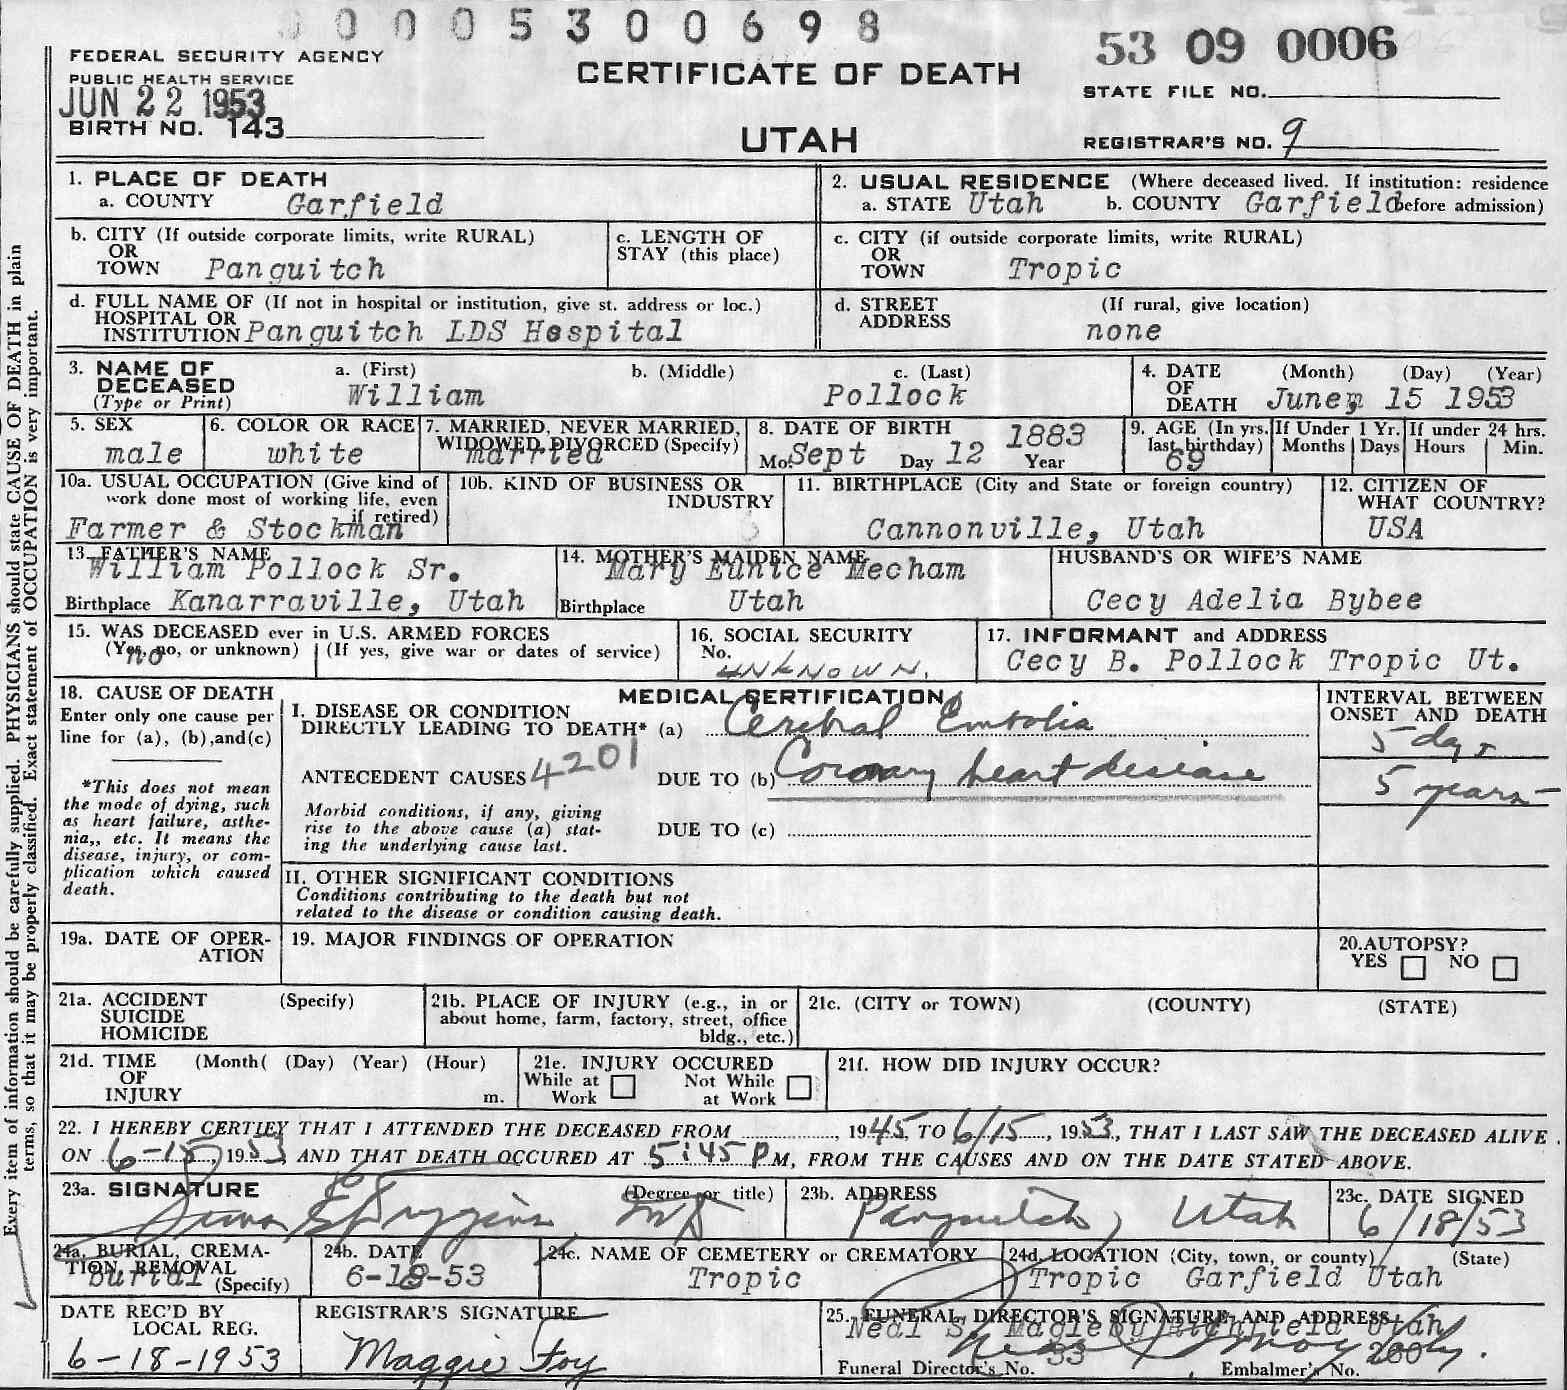 0 0 0 0 5 3 0 0 6 9 8
53 09 0006
FEDERAL SECURITY AGENCY
PUBLIC HEALTH SERVICE
JUN 22 1953
BIRTH NO. 143
CERTIFICATE OF DEATH
UTAH
STATE FILE NO.
REGISTRAR'S NO. 9
1. PLACE OF DEATH
a. COUNTY Garfield
2. USUAL RESIDENCE (Where deceased lived. If institution: residence
a. STATE Utah b. COUNTY Garfield before admission)
b. CITY (If outside corporate limits, write RURAL)
OR
TOWN Panguitch
c. LENGTH OF
STAY (this place)
c. CITY (if outside corporate limits, write RURAL)
OR
TOWN Tropic
d. FULL NAME OF (If not in hospital or institution, give st. address or loc.)
HOSPITAL OR
INSTITUTION Panguitch LDS Hospital
d. STREET (If rural, give location)
ADDRESS none
3. NAME OF
DECEASED
(Type or Print)
a. (First) b. (Middle) c. (Last)
William Pollock
4. DATE (Month) (Day) (Year)
OF
DEATH June 15 1953
5. SEX
male
6. COLOR OR RACE
white
7. MARRIED, NEVER MARRIED,
WIDOWED, DIVORCED (Specify)
married
8. DATE OF BIRTH 1883
Mo. Sept Day 12 Year
9. AGE (In yrs.
last birthday)
69
If Under 1 Yr.
Months Days
If under 24 hrs.
Hours Min.
10a. USUAL OCCUPATION (Give kind of
work done most of working life, even
if retired)
Farmer & Stockman
10b. KIND OF BUSINESS OR
INDUSTRY
11. BIRTHPLACE (City and State or foreign country)
Cannonville, Utah
12. CITIZEN OF
WHAT COUNTRY?
USA
13. FATHER'S NAME
William Pollock Sr.
Birthplace Kanarraville, Utah
14. MOTHER'S MAIDEN NAME
Mary Eunice Mecham
Birthplace Utah
HUSBAND'S OR WIFE'S NAME
Cecy Adelia Bybee
15. WAS DECEASED ever in U.S. ARMED FORCES
(Yes, no, or unknown) (If yes, give war or dates of service)
no
16. SOCIAL SECURITY
No.
UNKNOWN.
17. INFORMANT and ADDRESS
Cecy B. Pollock Tropic Ut.
18. CAUSE OF DEATH
Enter only one cause per
line for (a), (b), and (c)
*This does not mean
the mode of dying, such
as heart failure, asthe-
nia,, etc. It means the
disease, injury, or com-
plication which caused
death.
MEDICAL CERTIFICATION
I. DISEASE OR CONDITION
DIRECTLY LEADING TO DEATH* (a) Cerebral Embolia
ANTECEDENT CAUSES 4201 DUE TO (b) Coronary heart disease
Morbid conditions, if any, giving
rise to the above cause (a) stat-
ing the underlying cause last.
DUE TO (c)
INTERVAL BETWEEN
ONSET AND DEATH
5 days
5 years
II. OTHER SIGNIFICANT CONDITIONS
Conditions contributing to the death but not
related to the disease or condition causing death.
19a. DATE OF OPER-
ATION
19. MAJOR FINDINGS OF OPERATION
20. AUTOPSY?
YES NO
21a. ACCIDENT (Specify)
SUICIDE
HOMICIDE
21b. PLACE OF INJURY (e.g., in or
about home, farm, factory, street, office
bldg., etc.)
21c. (CITY or TOWN) (COUNTY) (STATE)
21d. TIME (Month( (Day) (Year) (Hour)
OF
INJURY m.
21e. INJURY OCCURED
While at Work Not While at Work
21f. HOW DID INJURY OCCUR?
22. I HEREBY CERTIFY THAT I ATTENDED THE DECEASED FROM 1945, TO 6/15, 1953, THAT I LAST SAW THE DECEASED ALIVE
ON 6-15 1953, AND THAT DEATH OCCURED AT 5:45 P M, FROM THE CAUSES AND ON THE DATE STATED ABOVE.
23a. SIGNATURE (Degree or title)
MD
23b. ADDRESS
Panguitch, Utah
23c. DATE SIGNED
6/18/53
24a. BURIAL, CREMA-
TION, REMOVAL
(Specify)
burial
24b. DATE
6-18-53
24c. NAME OF CEMETERY OR CREMATORY
Tropic
24d. LOCATION (City, town, or county) (State)
Tropic Garfield Utah
DATE REC'D BY
LOCAL REG.
6-18-1953
REGISTRAR'S SIGNATURE
Maggie Foy
25. FUNERAL DIRECTOR'S SIGNATURE AND ADDRESS
Neal S. Magleby Richfield Utah
Funeral Director's No. 33 Embalmer's No. 200
Every item of information should be carefully supplied. PHYSICIANS should state CAUSE OF DEATH in plain
terms, so that it may be properly classified. Exact statement of OCCUPATION is very important.